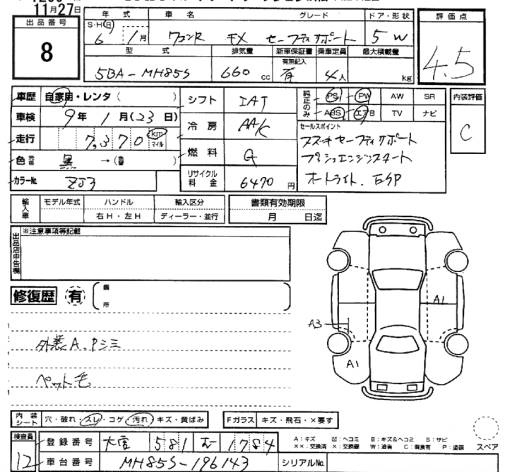 11月27日
出品番号
8
年式 車名 グレード ドア・形状
S・H・R 6年1月 ワゴンR FX セーフティサポート 5W
型式 排気量 新車保証書 乗車定員 最大積載量
有無記入
5BA-MH85S 660cc 有 4人 kg
評価点
4.5
車歴 自家用・レンタ( )
車検 9年1月(23日)
走行 7,370 km マイル
色 黒 →( )
カラーNo. ZJ3
シフト IAT
冷房 AA/C
燃料 G
リサイクル料金 6470円
純正のみ PS PW AW SR
ABS エアB TV ナビ
内装評価
C
セールスポイント
スズキセーフティサポート
プッシュエンジンスタート
オートライト、ESP
輸入車 モデル年式 ハンドル 輸入区分
右H・左H ディーラー・並行
書類有効期限
月 日迄
出品店申告欄
※注意事項等記載
修復歴 有 箇所
外装A、Pシミ
ペット毛
A1
A3
A1
内装シート 穴・破れ・スレ・コゲ・汚れ・キズ・黄ばみ
Fガラス キズ・飛石・×要す
検査員
12
登録番号 大宮 581 む 1784
車台番号 MH85S-196143
シリアルNo.
A:キズ
スペア